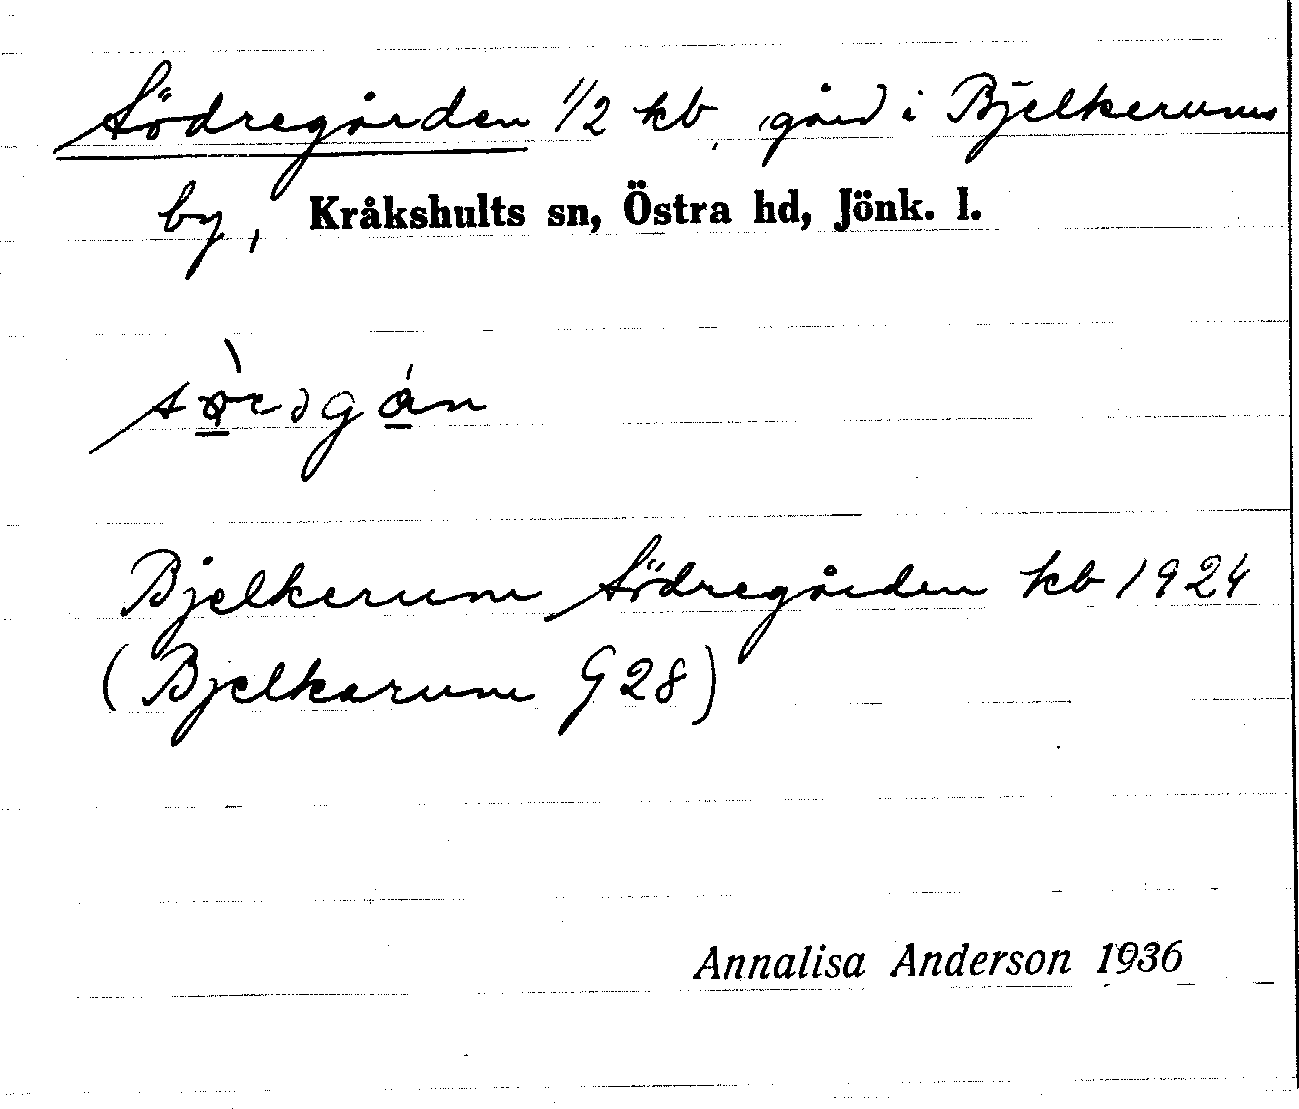 Södregården 1/2 kb, gård i Bjelkerums
by, Kråkshults sn, Östra hd, Jönk. l.
Bjelkerum Södregården kb 1924
(Bjelkarum G 28)
Annalisa Anderson 1936